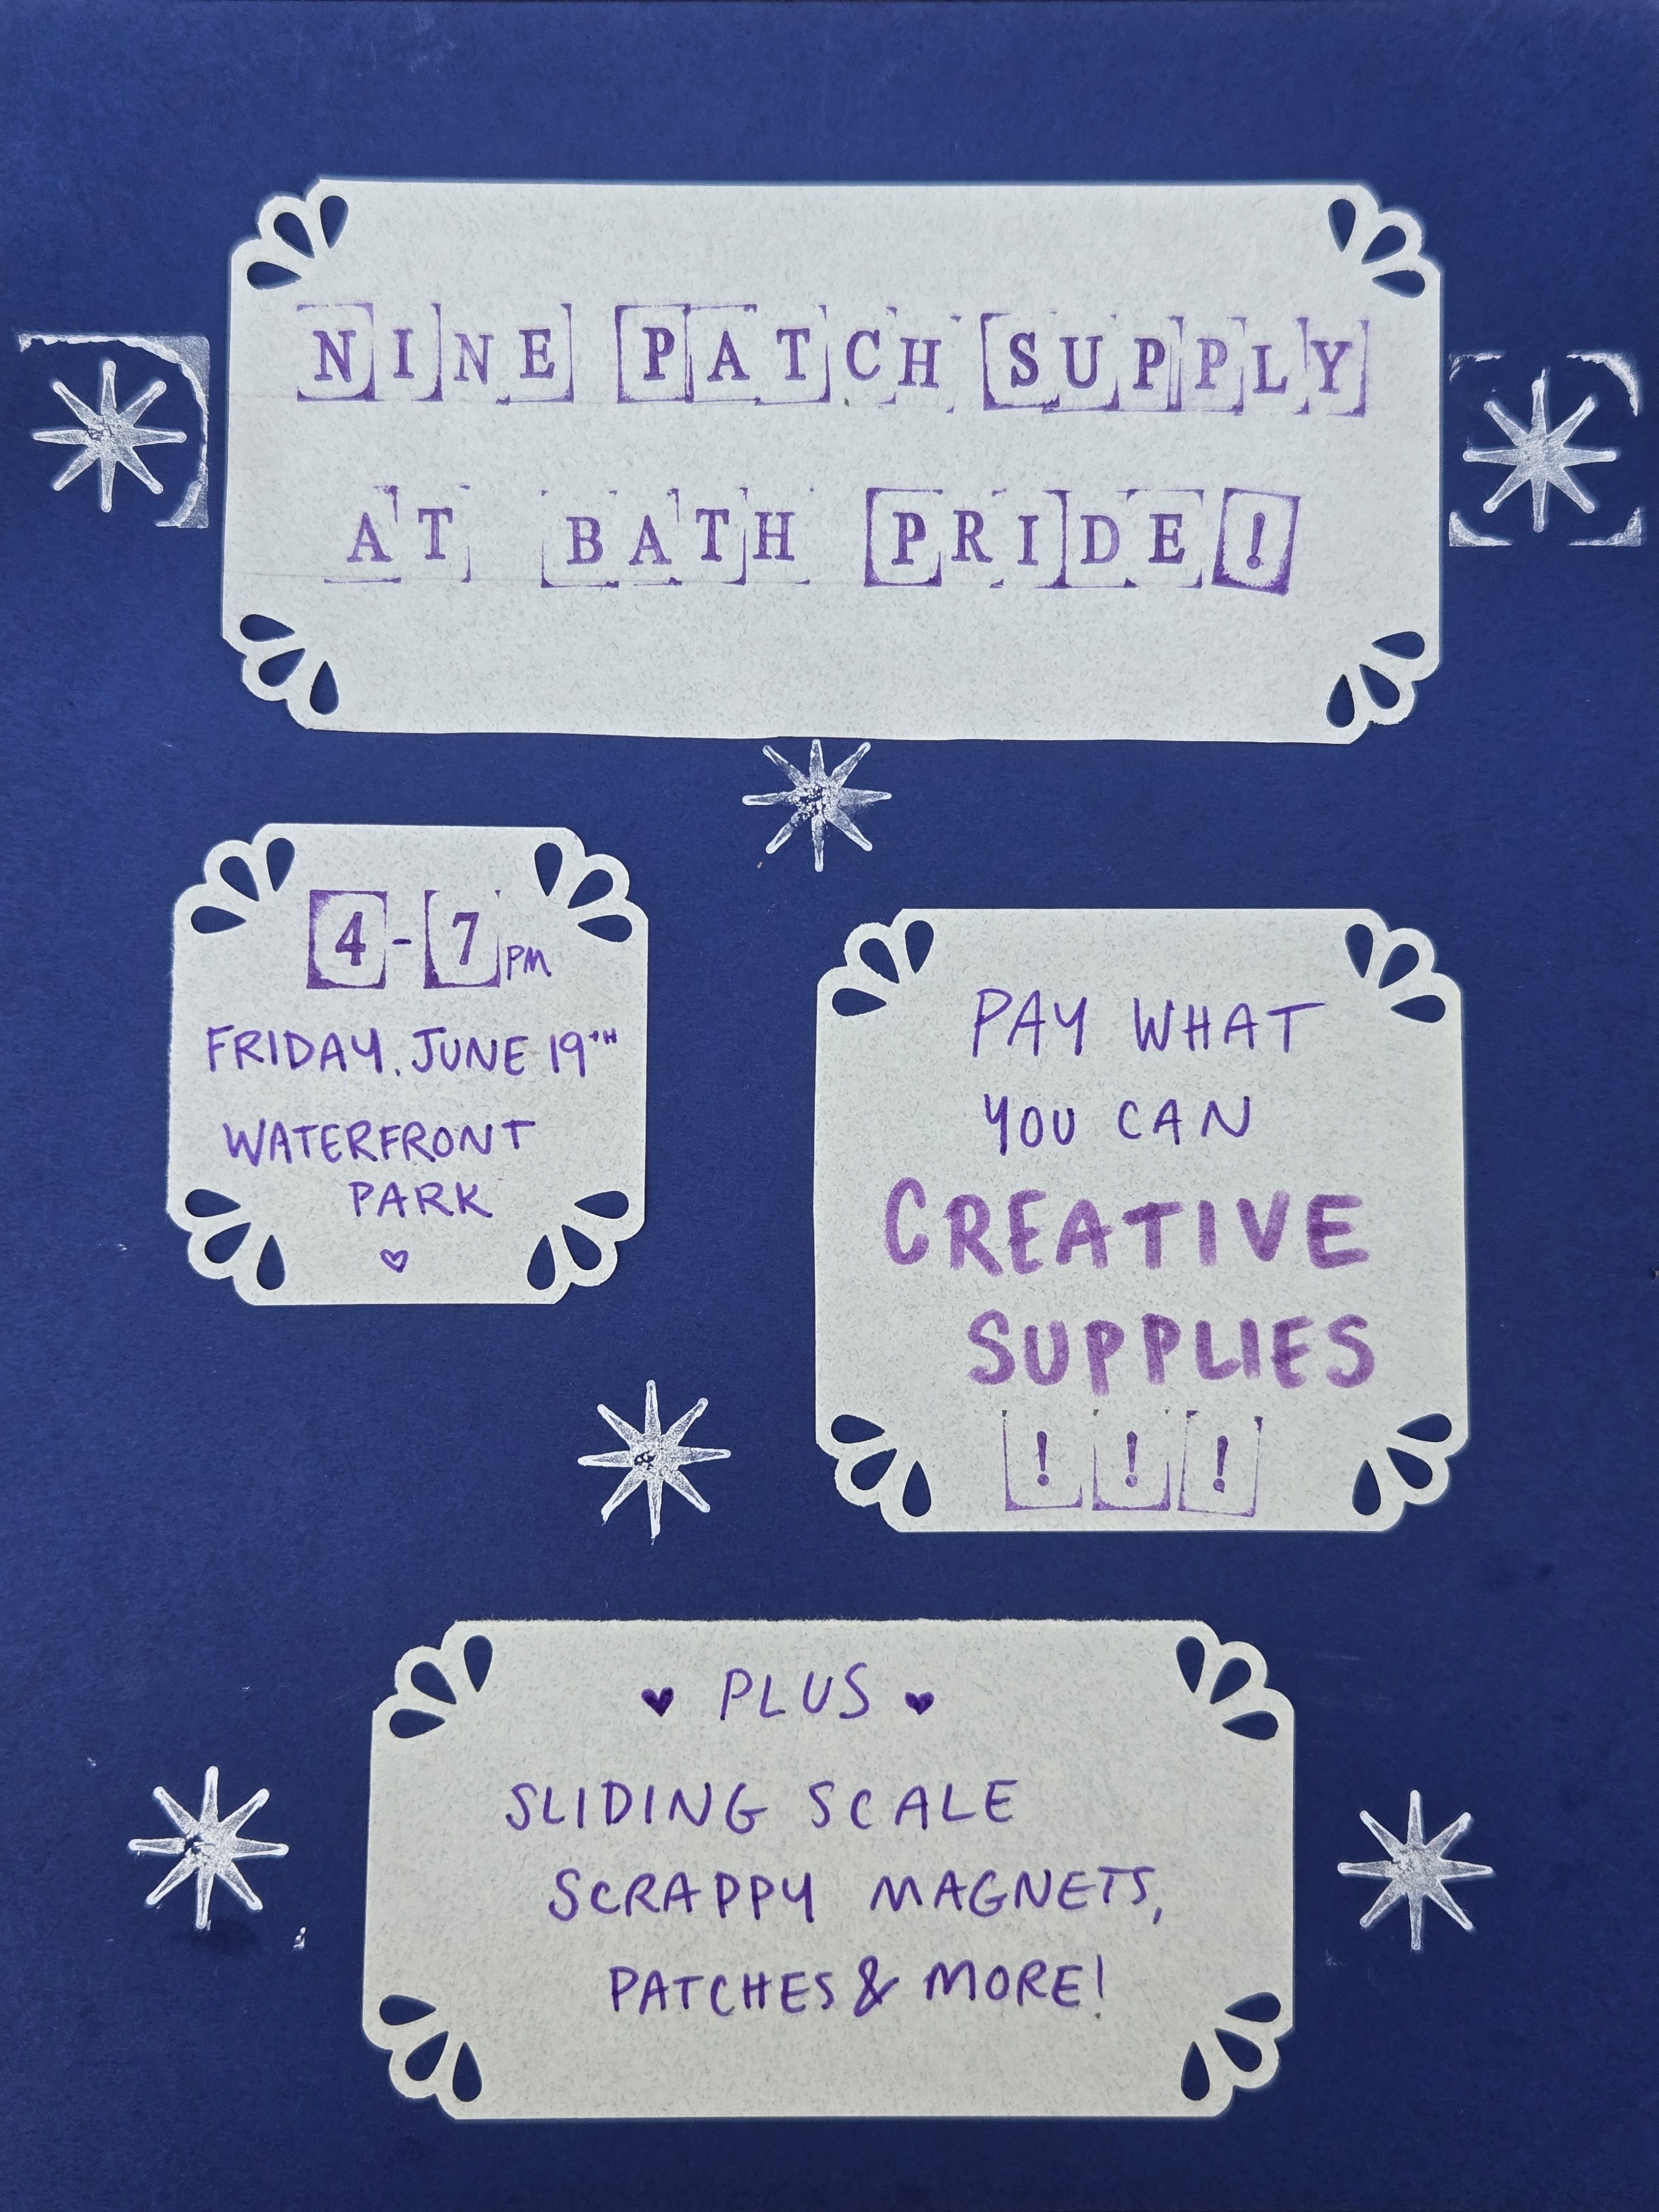 NINE PATCH SUPPLY
AT BATH PRIDE!
4-7 PM
FRIDAY. JUNE 19TH
WATERFRONT
PARK
PAY WHAT
YOU CAN
CREATIVE
SUPPLIES
!!!
PLUS
SLIDING SCALE
SCRAPPY MAGNETS,
PATCHES & MORE!